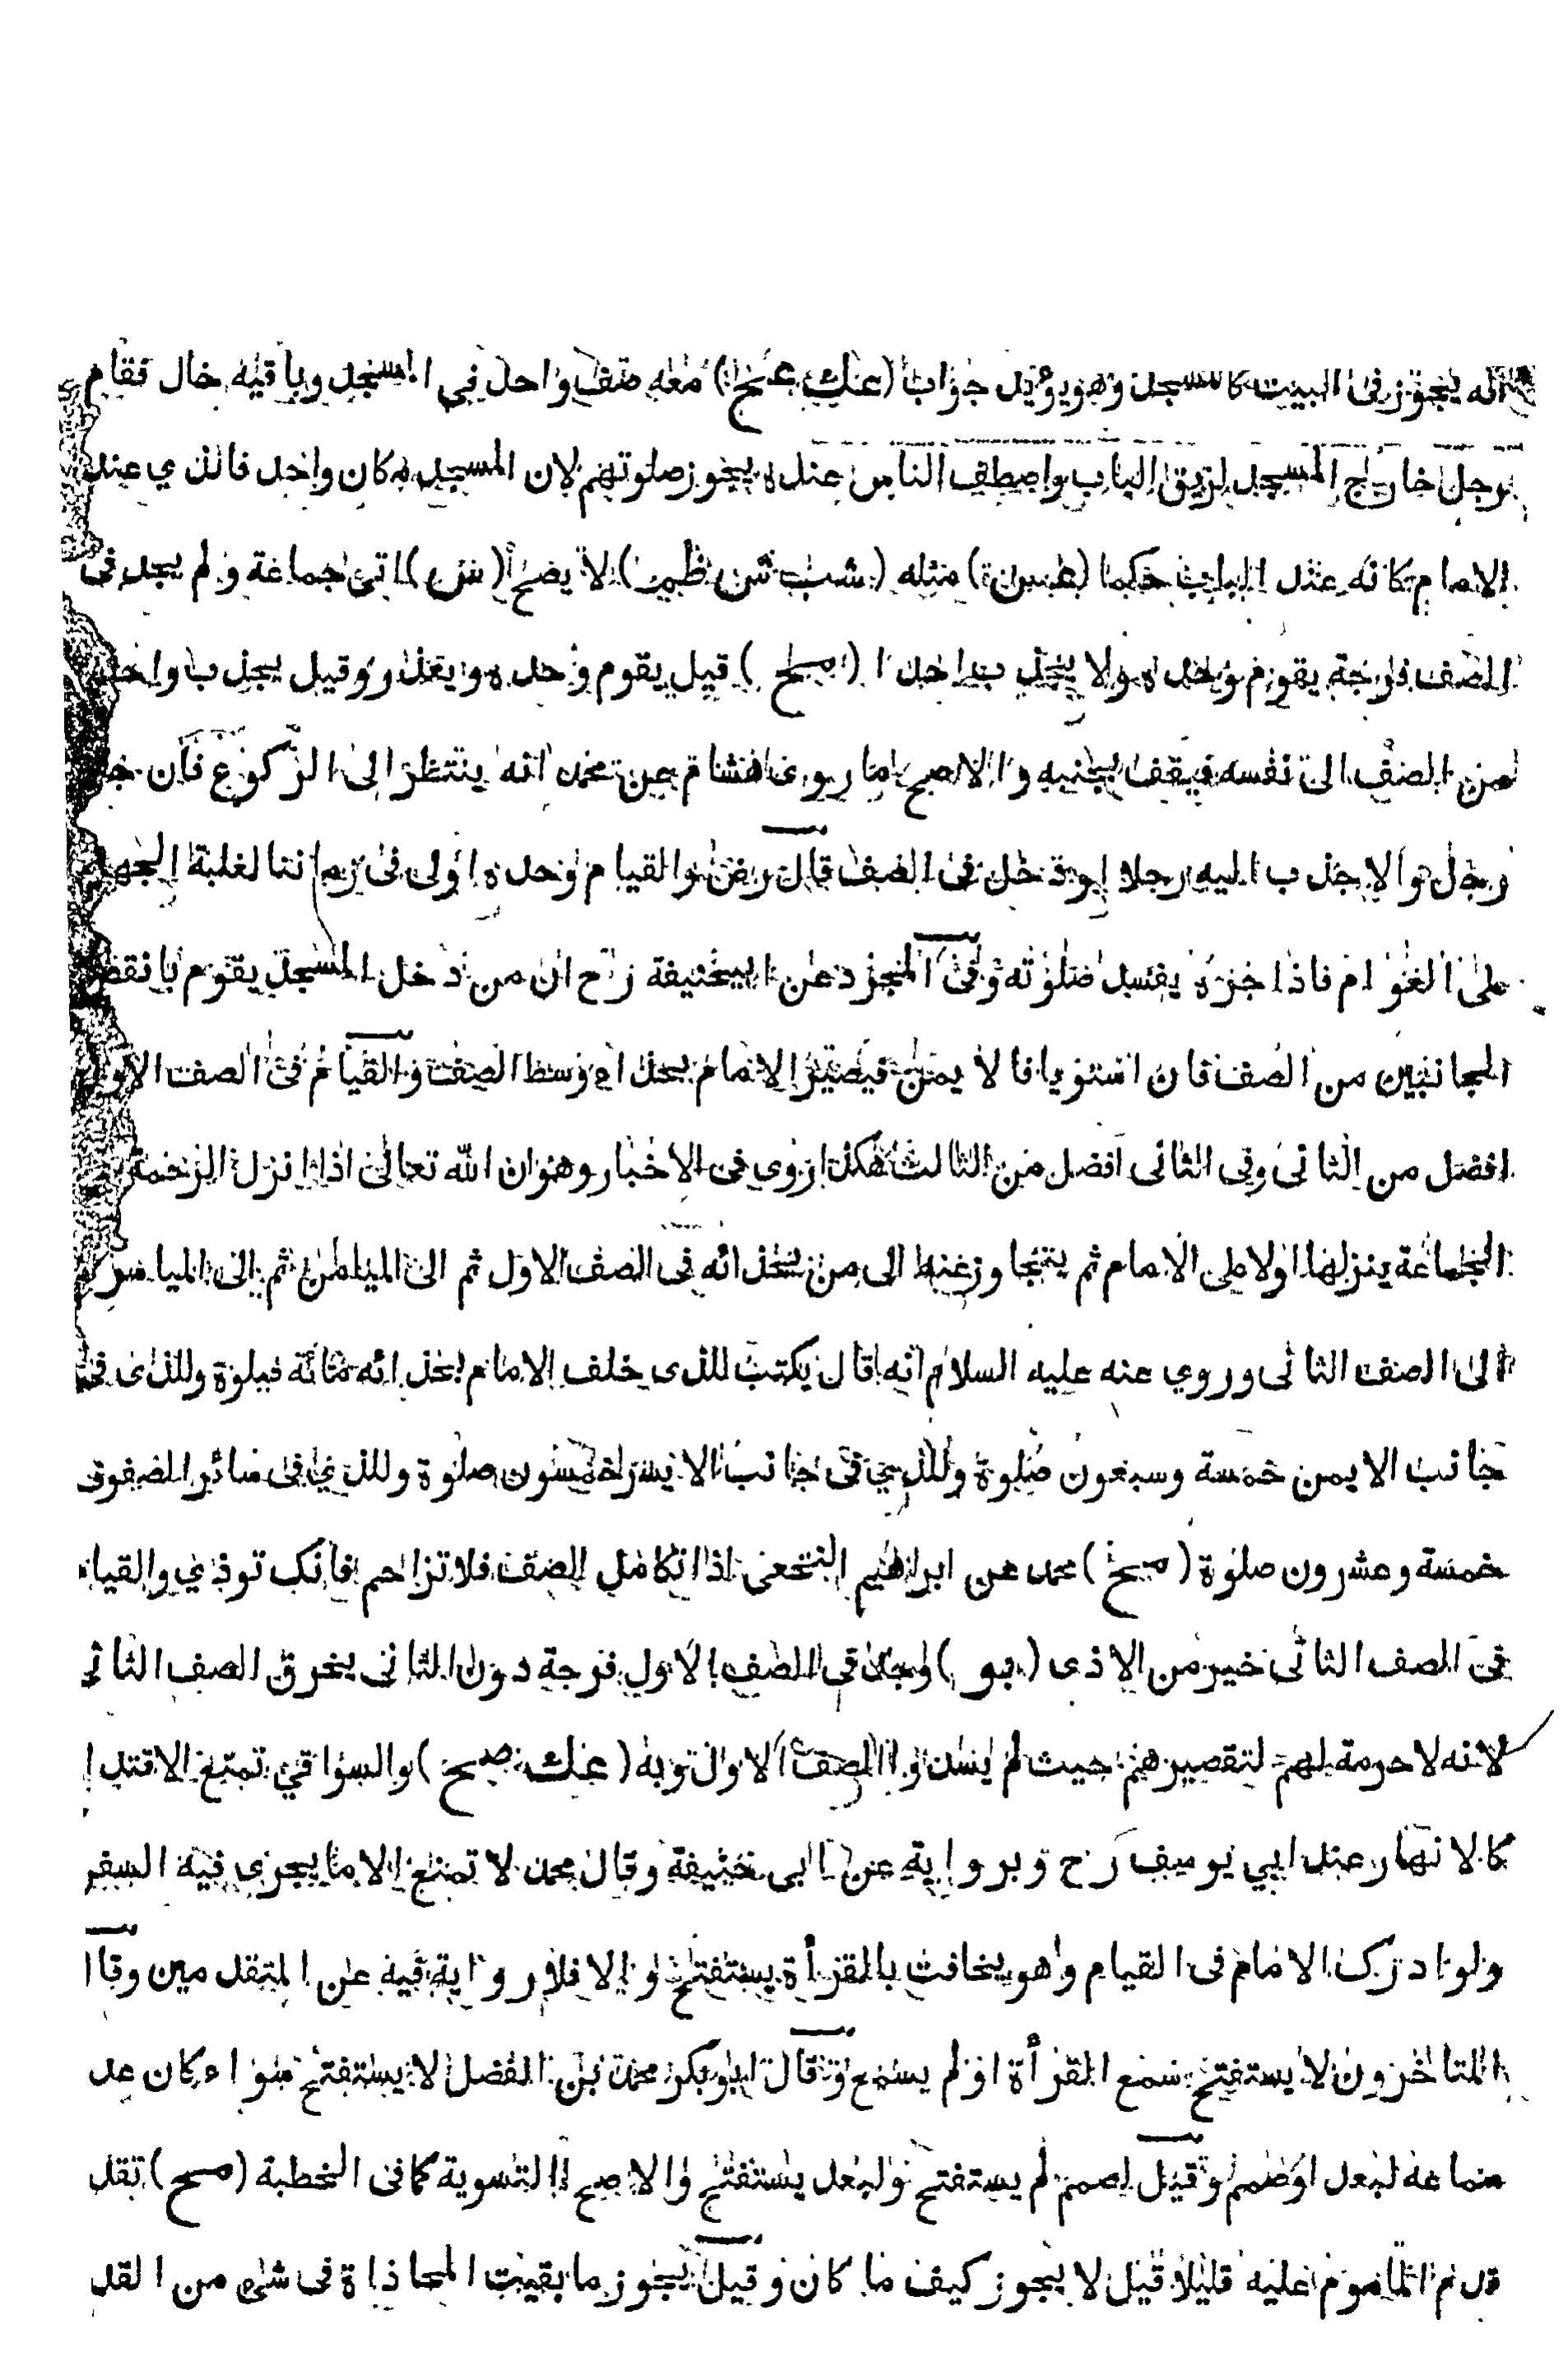 انه يجوز في البيت كالمسجد وهو يؤيد جواب (عك عخ) معه صف واحد في المسجد وباقيه خال فقام
رجل خارج المسجد لزيق الباب واصطف الناس عنده يجوز صلوتهم لان المسجد مكان واحد فالذي عند
الامام كانه عند الباب حكما مثله (شب شن ظم) لا يصح (شن) اتى جماعة ولم يجد في
الصف فرجة يقوم وحده ولا يجذب احدا (صح) قيل يقوم وحده ويعذر وقيل يجذب واحدا
من الصف الى نفسه فيقف بجنبه والاصح ما روى هشام عن محمد انه ينتظر الى الركوع فان جاء
رجل والا جذب اليه رجلا او دخل فى الصف قال رض والقيام وحده اولى فى زماننا لغلبة الجهل
على العوام فاذا جره يفسد صلوته وفى المجرد عن ابيحنيفة رح ان من دخل المسجد يقوم بانقص
الجانبين من الصف فان استويا فالايمن فيصير الامام بحذاء وسط الصف والقيام فى الصف الاول
افضل من الثانى وفى الثانى افضل من الثالث هكذا روى فى الاخبار وهو ان الله تعالى اذا انزل الرحمة
الجماعة ينزلها اولا على الامام ثم يتجاوز عنها الى من بحذائه فى الصف الاول ثم الى الميامن ثم الى المياسر
الى الصف الثانى وروي عنه عليه السلام انه قال يكتب للذى خلف الامام بحذائه مائة صلوة وللذى فى
جانب الايمن خمسة وسبعون صلوة وللذي فى جانب الايسر خمسون صلوة وللذي فى سائر الصفوف
خمسة وعشرون صلوة (صح) محمد عن ابراهيم النخعى اذا تكامل الصف فلا تزاحم فانك توذي والقيام
فى الصف الثانى خير من الاذى (بو) وجد فى الصف الاول فرجة دون الثانى يخرق الصف الثانى
لانه لا حرمة لهم لتقصيرهم حيث لم يسدوا الصف الاول توبه (عك صح) والسواقي تمنع الاقتدا
كالانهار عند ابي يوسف رح وبرواية عن ابى حنيفة وقال محمد لا تمنع الا ما يجرى فيه السفن
ولو ادرك الامام فى القيام وهو يخافت بالقرأة يستفتح والا فلا رواية فيه عن المتقدمين وقال
المتاخرون لا يستفتح سمع القرأة او لم يسمع وقال ابو بكر محمد بن الفضل لا يستفتح سواء كان عدم
سماعه لبعد او صمم وقيل لصمم لم يستفتح ولبعد يستفتح والاصح التسوية كما فى الخطبة (صح) تقد
قدم الماموم عليه قليلا قيل لا يجوز كيف ما كان وقيل يجوز ما بقيت المحاذاة فى شئ من القد